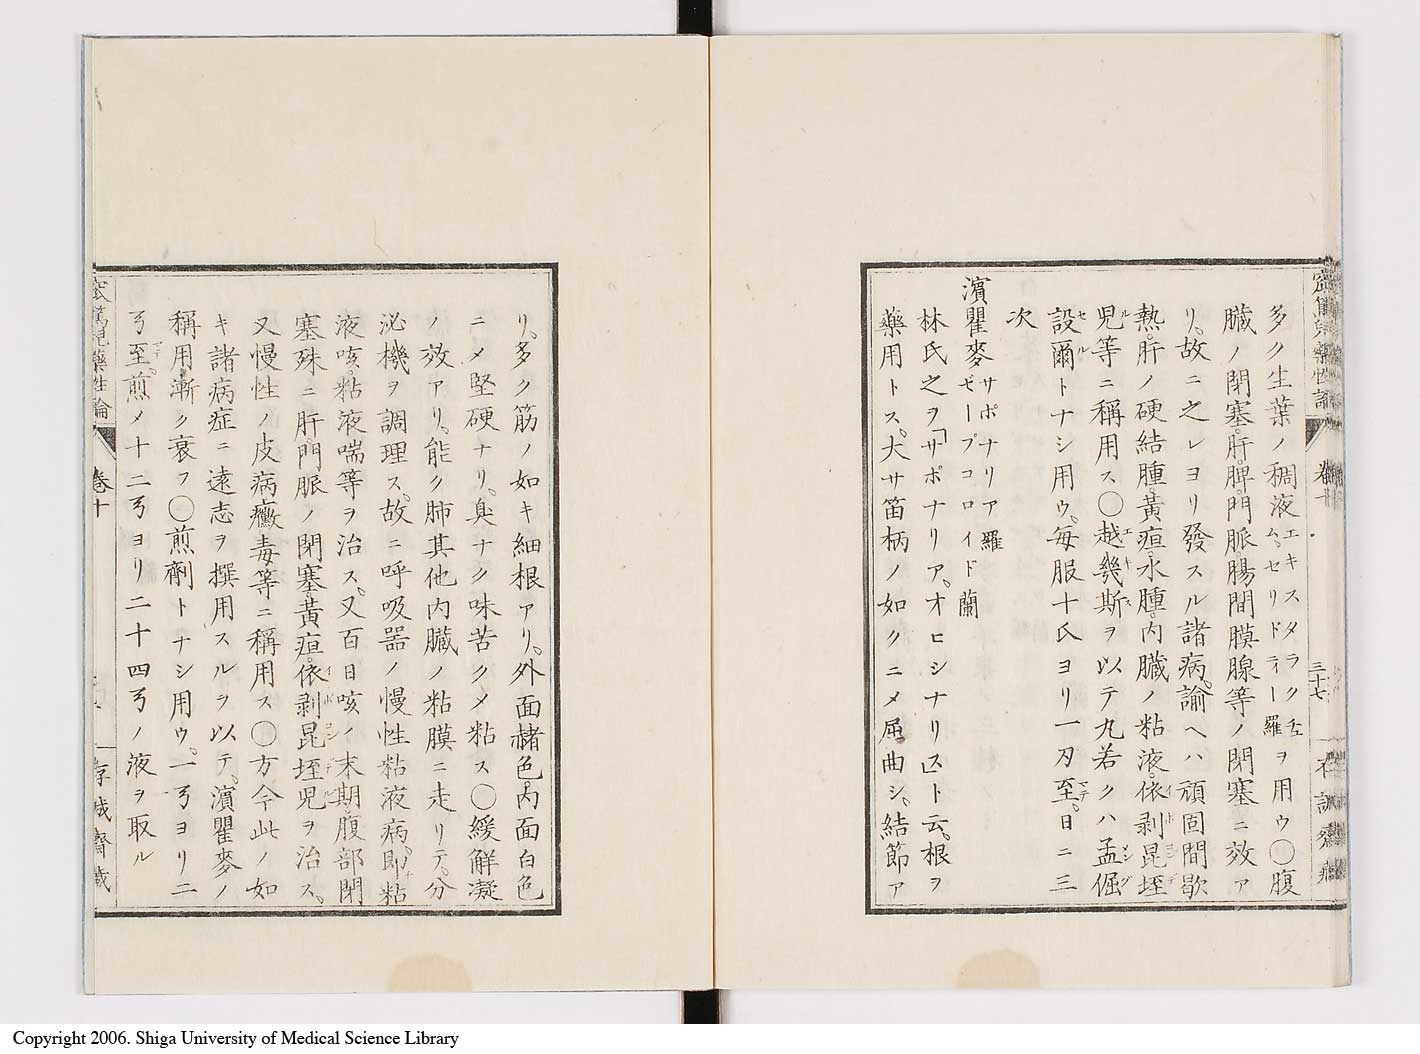 多ク生葉ノ稠液エキスタラクチュムセリドティー羅ヲ用ウ〇腹
臓ノ閉塞肝脾門脈腸間膜腺等ノ閉塞ニ效ア
リ故ニ之レヨリ發スル諸病諭ヘハ頑固間歇
熱肝ノ硬結腫黃疸水腫内臓ノ粘液依剥昆垤
児等ニ稱用ス〇越幾斯ヲ以テ丸若クハ孟倔
設爾トナシ用ウ毎服十氏ヨリ一刃至日ニ三
次
濱瞿麥サポナリア羅ゼープコロイド蘭
林氏之ヲ「サポナリア。オヒシナリス」ト云。根ヲ
藥用トス。大サ笛柄ノ如クニ乄屈曲シ。結節ア
リ。多ク筋ノ如キ細根アリ。外面赭色。内面白色
ニ乄堅硬ナリ。臭ナク味苦ク乄粘ス〇緩解凝
ノ效アリ。能ク肺其他内臓ノ粘膜ニ走リテ。分
泌機ヲ調理ス。故ニ呼吸器ノ慢性粘液病。即粘
液咳。粘液喘等ヲ治ス。又百日咳ノ末期。腹部閉
塞殊ニ肝門脈ノ閉塞。黃疸。依剥昆垤児ヲ治ス。
又慢性ノ皮病黴毒等ニ稱用ス〇方今此ノ如
キ諸病症ニ遠志ヲ撰用スルヲ以テ。濱瞿麥ノ
稱用漸ク衰フ〇煎劑トナシ用ウ。一弓ヨリ二
弓至。煎乄十二弓ヨリ二十四弓ノ液ヲ取ル
卷十
三十七
窊篤児藥性論
卷十
存誠齋藏